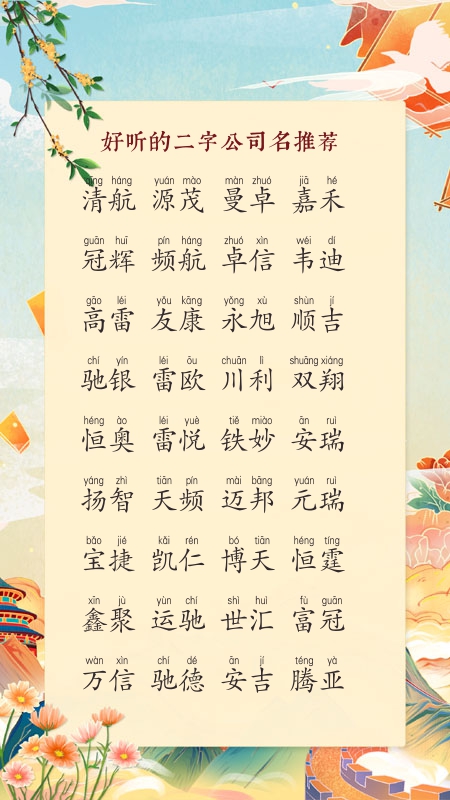 好听的二字公司名推荐
qīng háng yuán mào màn zhuó jiā hé
清航 源茂 曼卓 嘉禾
guān huī pín háng zhuó xìn wéi dí
冠辉 频航 卓信 韦迪
gāo léi yǒu kāng yǒng xù shùn jí
高雷 友康 永旭 顺吉
chí yín léi ōu chuān lì shuāng xiáng
驰银 雷欧 川利 双翔
héng ào léi yuè tiě miào ān ruì
恒奥 雷悦 铁妙 安瑞
yáng zhì tiān pín mài bāng yuán ruì
扬智 天频 迈邦 元瑞
bǎo jié kǎi rén bó tiān héng tíng
宝捷 凯仁 博天 恒霆
xīn jù yùn chí shì huì fù guān
鑫聚 运驰 世汇 富冠
wàn xìn chí dé ān jí téng yà
万信 驰德 安吉 腾亚